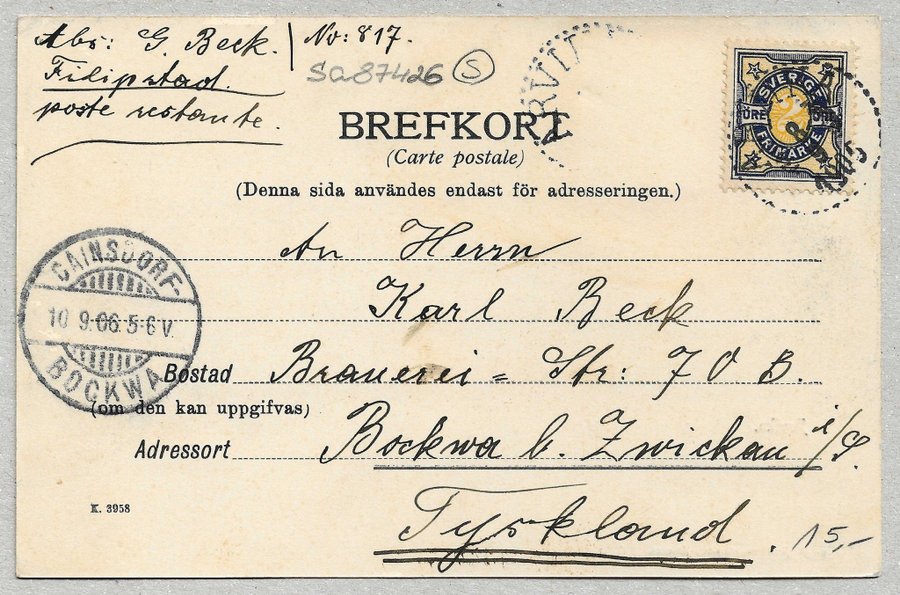 Abs: G. Beck.
Filipstad.
poste restante.
No: 817.
Sa87426 S
BREFKORT
(Carte postale)
(Denna sida användes endast för adresseringen.)
SVERIGE
ÖRE
FRIMÄRKE
An Herrn
Karl Beck
Bostad Brauerei = Str: 70 B.
(om den kan uppgifvas)
Adressort Bockwa b. Zwickau i/S.
Tyskland.
CAINSDORF-
10 9.06.5-6 V.
BOCKWA
K. 3958
15,-